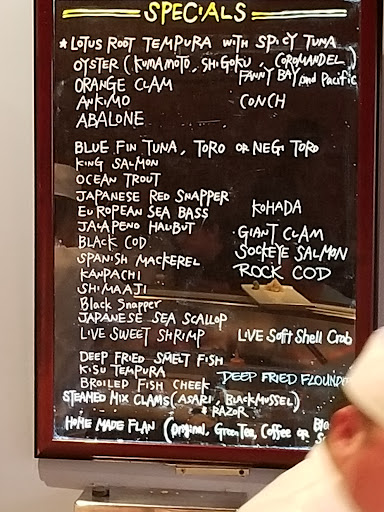 SPECIALS
* LOTUS ROOT TEMPURA WITH SPICY TUNA
OYSTER (KUMAMOTO, SHIGOKU, COROMANDEL)
FANNY BAY and Pacific
ORANGE CLAM
ANKIMO CONCH
ABALONE
BLUE FIN TUNA, TORO OR NEGI TORO
KING SALMON
OCEAN TROUT
JAPANESE RED SNAPPER
EUROPEAN SEA BASS KOHADA
JALAPENO HALIBUT GIANT CLAM
BLACK COD SOCKEYE SALMON
SPANISH MACKEREL ROCK COD
KANPACHI
SHIMAAJI
Black Snapper
JAPANESE SEA SCALLOP
LIVE SWEET SHRIMP LIVE Soft Shell Crab
DEEP FRIED SMELT FISH
KISU TEMPURA DEEP FRIED FLOUNDE
BROILED FISH CHEEK
STEAMED MIX CLAMS (ASARI, BLACK MUSSEL)
& RAZOR
HOME MADE FLAN (Original, Green Tea, Coffee OR